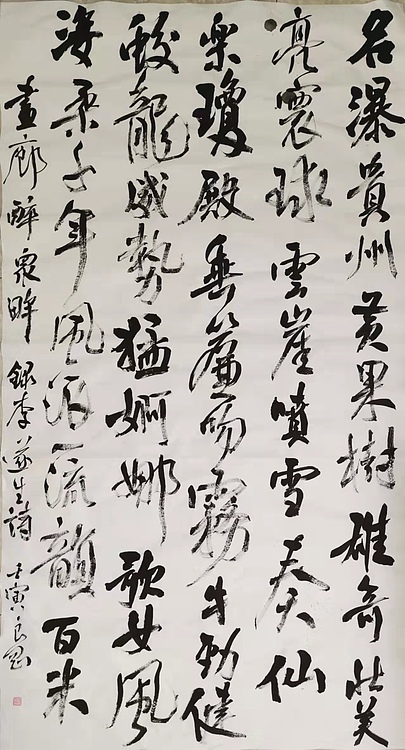 名瀑貴州黄果樹雄奇壯美
亮寰球雲崖噴雪奏仙
樂瓊殿垂簾吻霧牛勁健
蛟龍威勢猛婀娜歌女風
姿柔千年風流韻百米
畫廊醉眾眸 錄李遂生詩 壬寅良